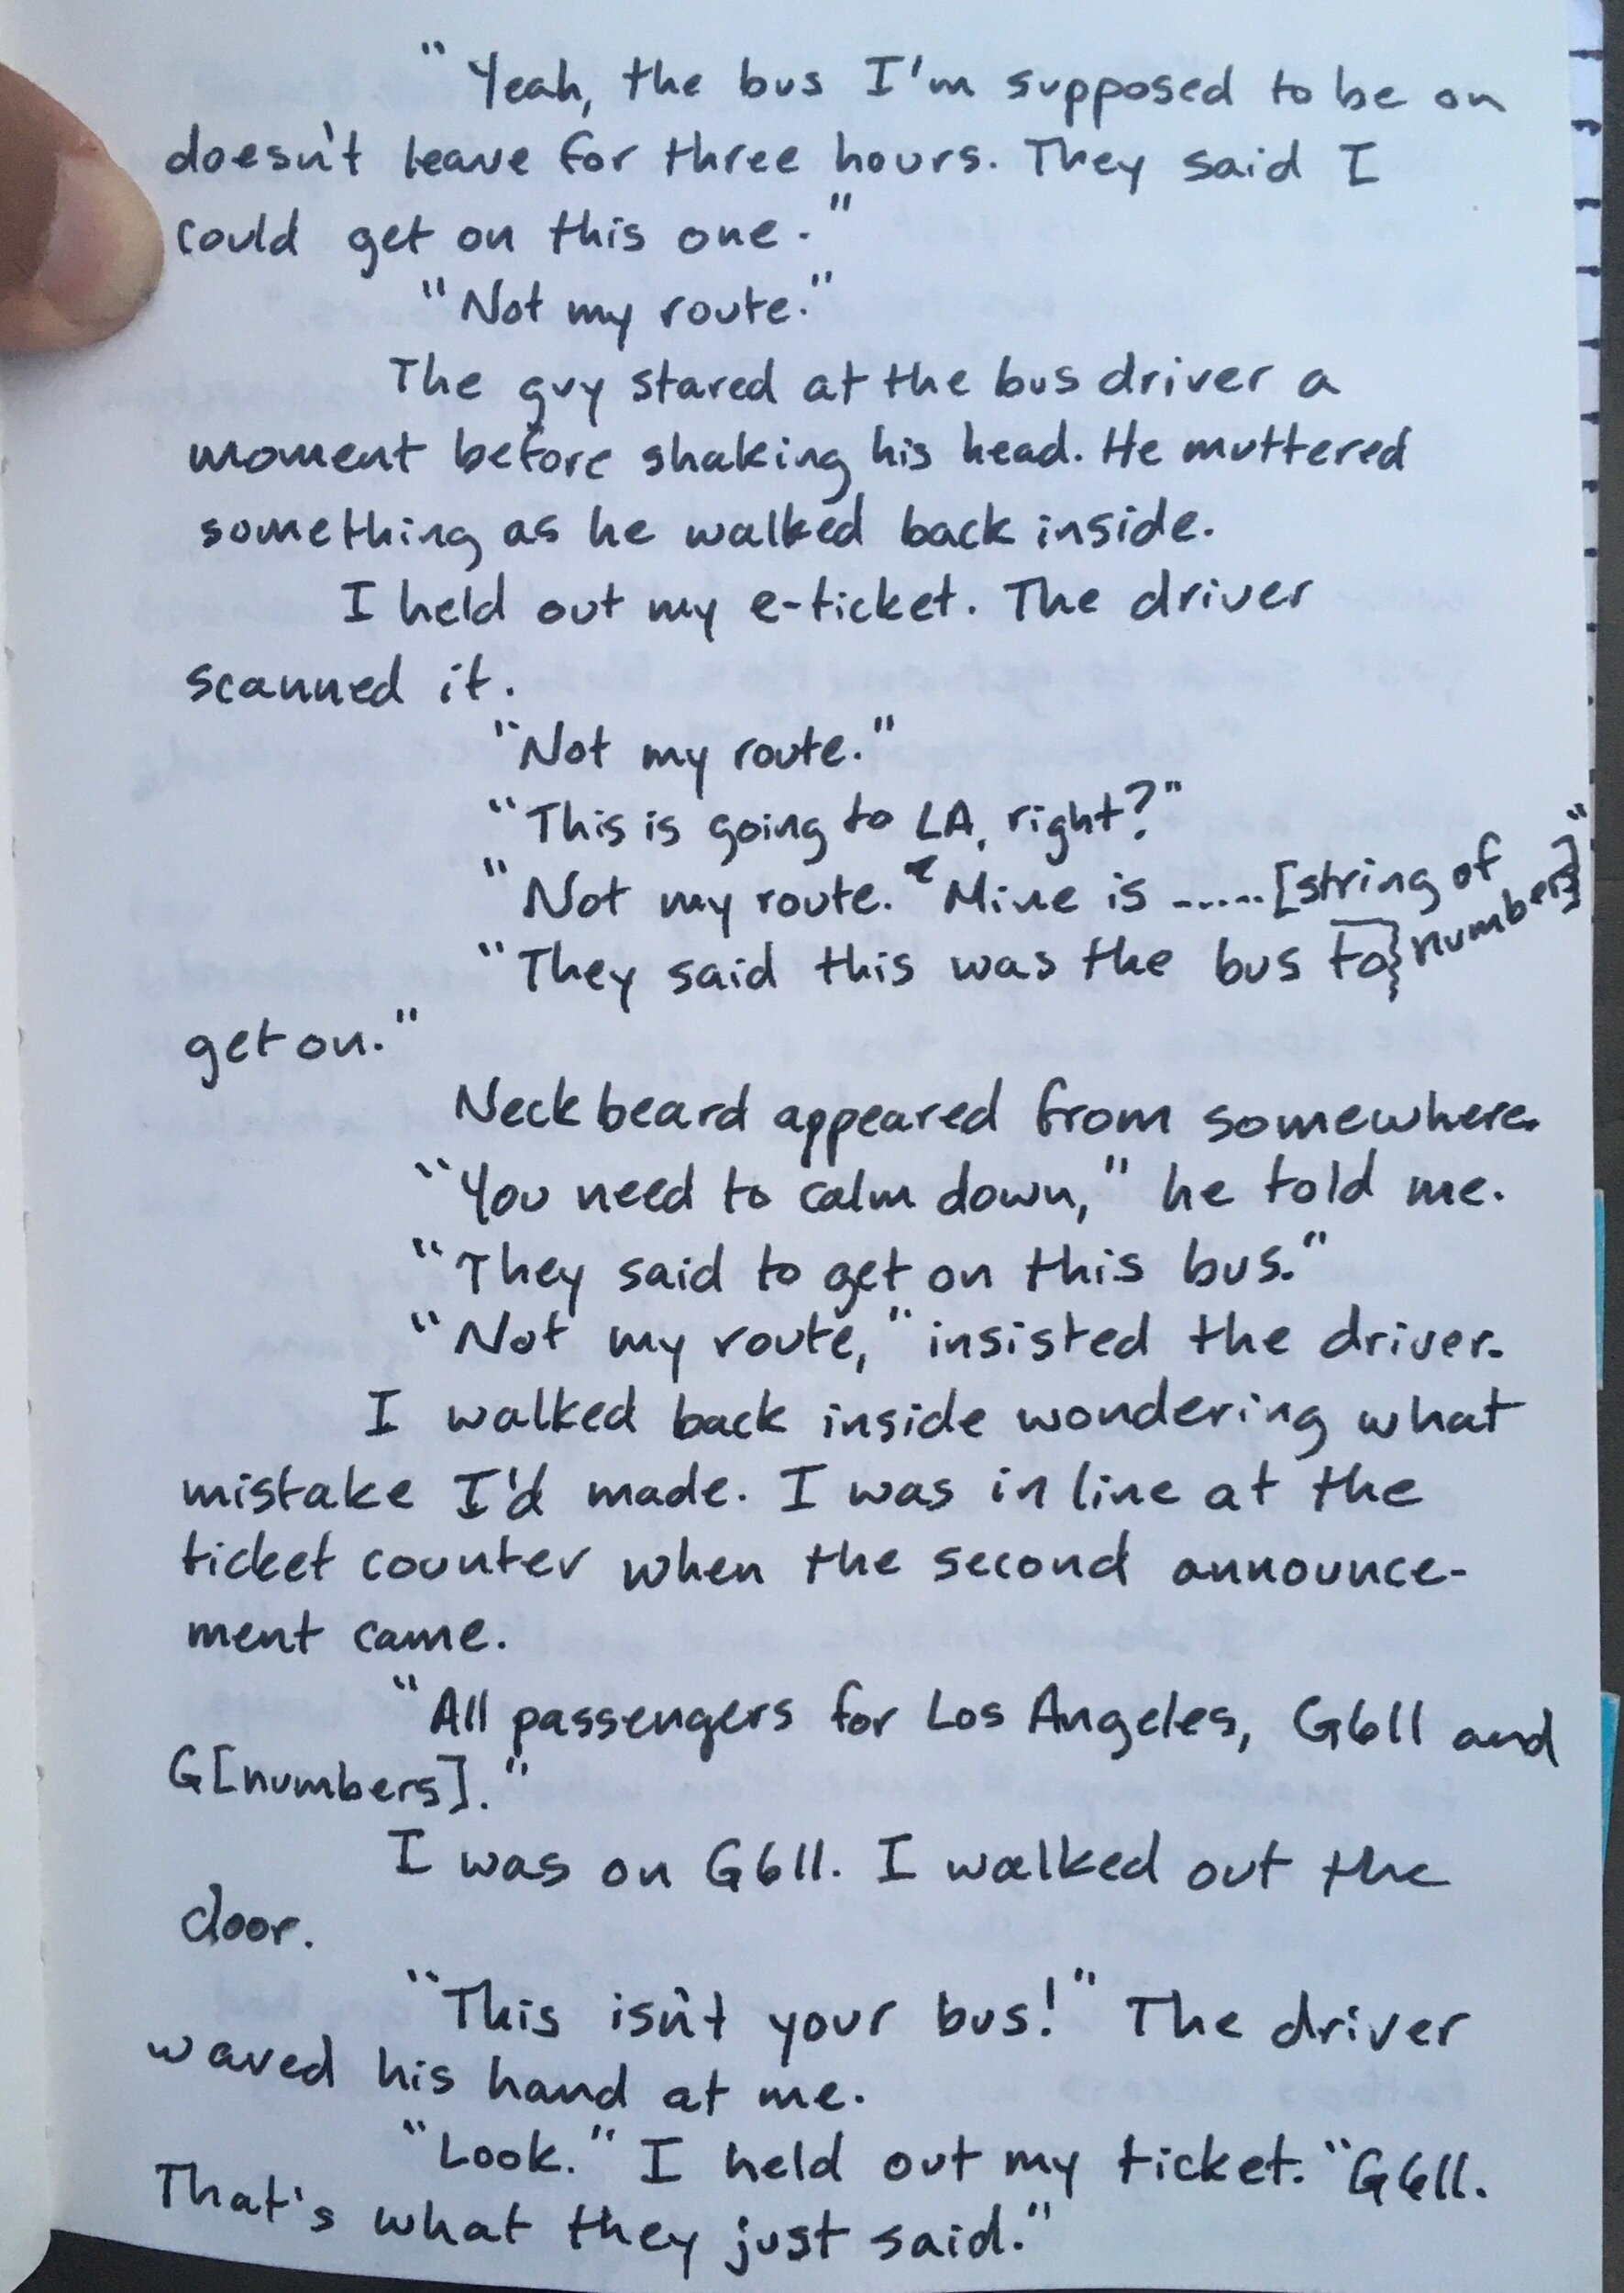 "Yeah, the bus I'm supposed to be on
doesn't leave for three hours. They said I
could get on this one."
"Not my route."
The guy stared at the bus driver a
moment before shaking his head. He muttered
something as he walked back inside.
I held out my e-ticket. The driver
scanned it.
"Not my route."
"This is going to LA, right?"
"Not my route. Mine is ...... [string of
numbers]"
"They said this was the bus to
get on."
Neckbeard appeared from somewhere.
"You need to calm down," he told me.
"They said to get on this bus."
"Not my route," insisted the driver.
I walked back inside wondering what
mistake I'd made. I was in line at the
ticket counter when the second announce-
ment came.
"All passengers for Los Angeles, G611 and
G[numbers]."
I was on G611. I walked out the
door.
"This isn't your bus!" The driver
waved his hand at me.
"Look." I held out my ticket. "G611.
That's what they just said."